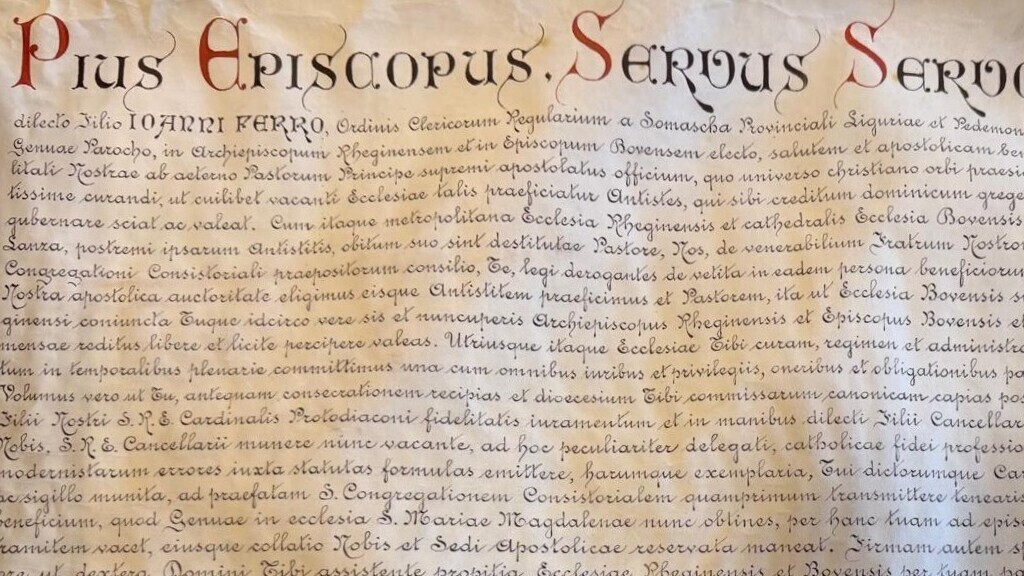 Pius Episcopus. Servus Servo
dilecto Filio IOANNI FERRO, Ordinis Clericorum Regularium a Somascha Provinciali Liguriae et Pedemon
Genuae Parocho, in Archiepiscopum Rheginensem et in Episcopum Bovensem electo, salutem et apostolicam ben
litati Nostrae ab aeterno Pastorum Principe supremi apostolatus officium, quo universo christiano orbi praesi
tissime curandi, ut cuilibet vacanti Ecclesiae talis praeficiatur Antistes, qui sibi creditum dominicum grege
gubernare sciat ac valeat. Cum itaque metropolitana Ecclesia Rheginensis et cathedralis Ecclesia Bovensis
Lanza, postremi ipsarum Antistitis, obitum suo sint destitutae Pastore, Nos, de venerabilium Fratrum Nostror
Congregationi Consistoriali praepositorum consilio, Te, legi derogantes de vetita in eadem persona beneficioru
Nostra apostolica auctoritate eligimus eisque Antistitem praeficimus et Pastorem, ita ut Ecclesia Bovensis s
ginensi coniuncta Tuque idcirco vere sis et nuncuperis Archiepiscopus Rheginensis et Episcopus Bovensis et
mensae reditus libere et licite percipere valeas. Utriusque itaque Ecclesiae Tibi curam, regimen et administra
tum in temporalibus plenarie committimus una cum omnibus iuribus et privilegiis, oneribus et obligationibus pa
Volumus vero ut Tu, antequam consecrationem recipias et dioecesium Tibi commissarum canonicam capias pos
Filii Nostri S.R.E. Cardinalis Protodiaconi fidelitatis iuramentum et in manibus dilecti Filii Cancellar
Nobis, S.R.E. Cancellarii munere nunc vacante, ad hoc peculiariter delegati, catholicae fidei professio
modernistarum errores iuxta statutas formulas emittere, harumque exemplaria, Tui dictorumque Car
ac sigillo munita, ad praefatam S. Congregationem Consistorialem quamprimum transmittere tenearis
beneficium, quod Genuae in ecclesia S. Mariae Magdalenae nunc obtines, per hanc tuam ad episc
tramitem vacet, eiusque collatio Nobis et Sedi Apostolicae reservata maneat. Firmam autem s
re ut dextera Domini Tibi assistente propitia Ecclesiae Rheginensis et Bovensis per tuam pa